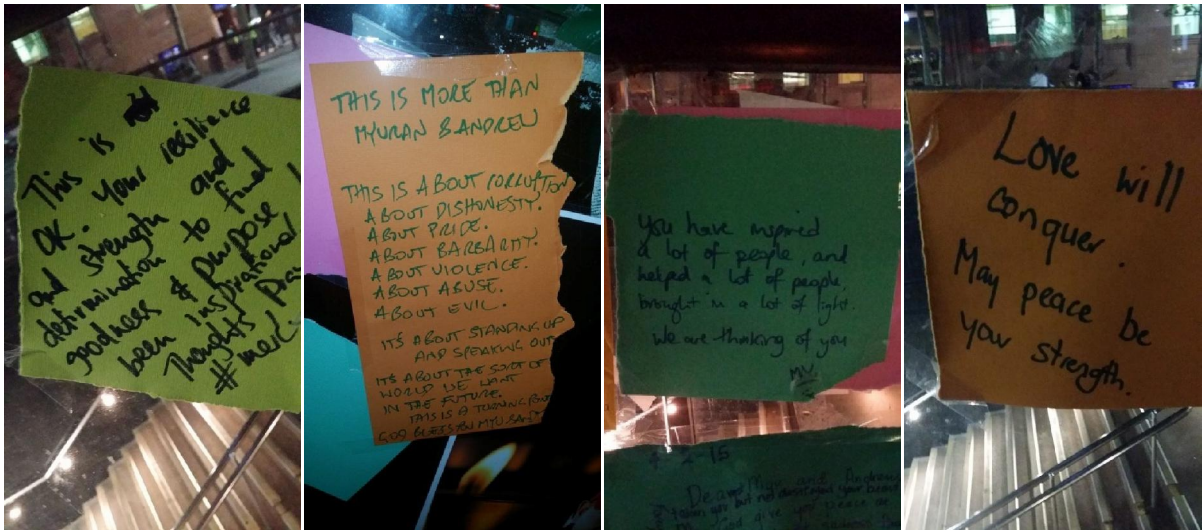 This is
OK. Your resilience
and strength and
determination to find
goodness & purpose
been inspirational
Thoughts
THIS IS MORE THAN
MYURAN & ANDREW
THIS IS ABOUT CORRUPTION
ABOUT DISHONESTY.
ABOUT PRIDE.
ABOUT BARBARITY.
ABOUT VIOLENCE.
ABOUT ABUSE.
ABOUT EVIL.
IT'S ABOUT STANDING UP
AND SPEAKING OUT
IT'S ABOUT THE SORT OF
WORLD WE WANT
IN THE FUTURE.
THIS IS A TURNING POINT
GOD BLESS YOU MYU
You have inspired
a lot of people, and
helped a lot of people,
brought in a lot of light.
We are thinking of you
MV
2-15
Dear Myu and
your
give you peace
Love will
conquer.
May peace be
your strength.